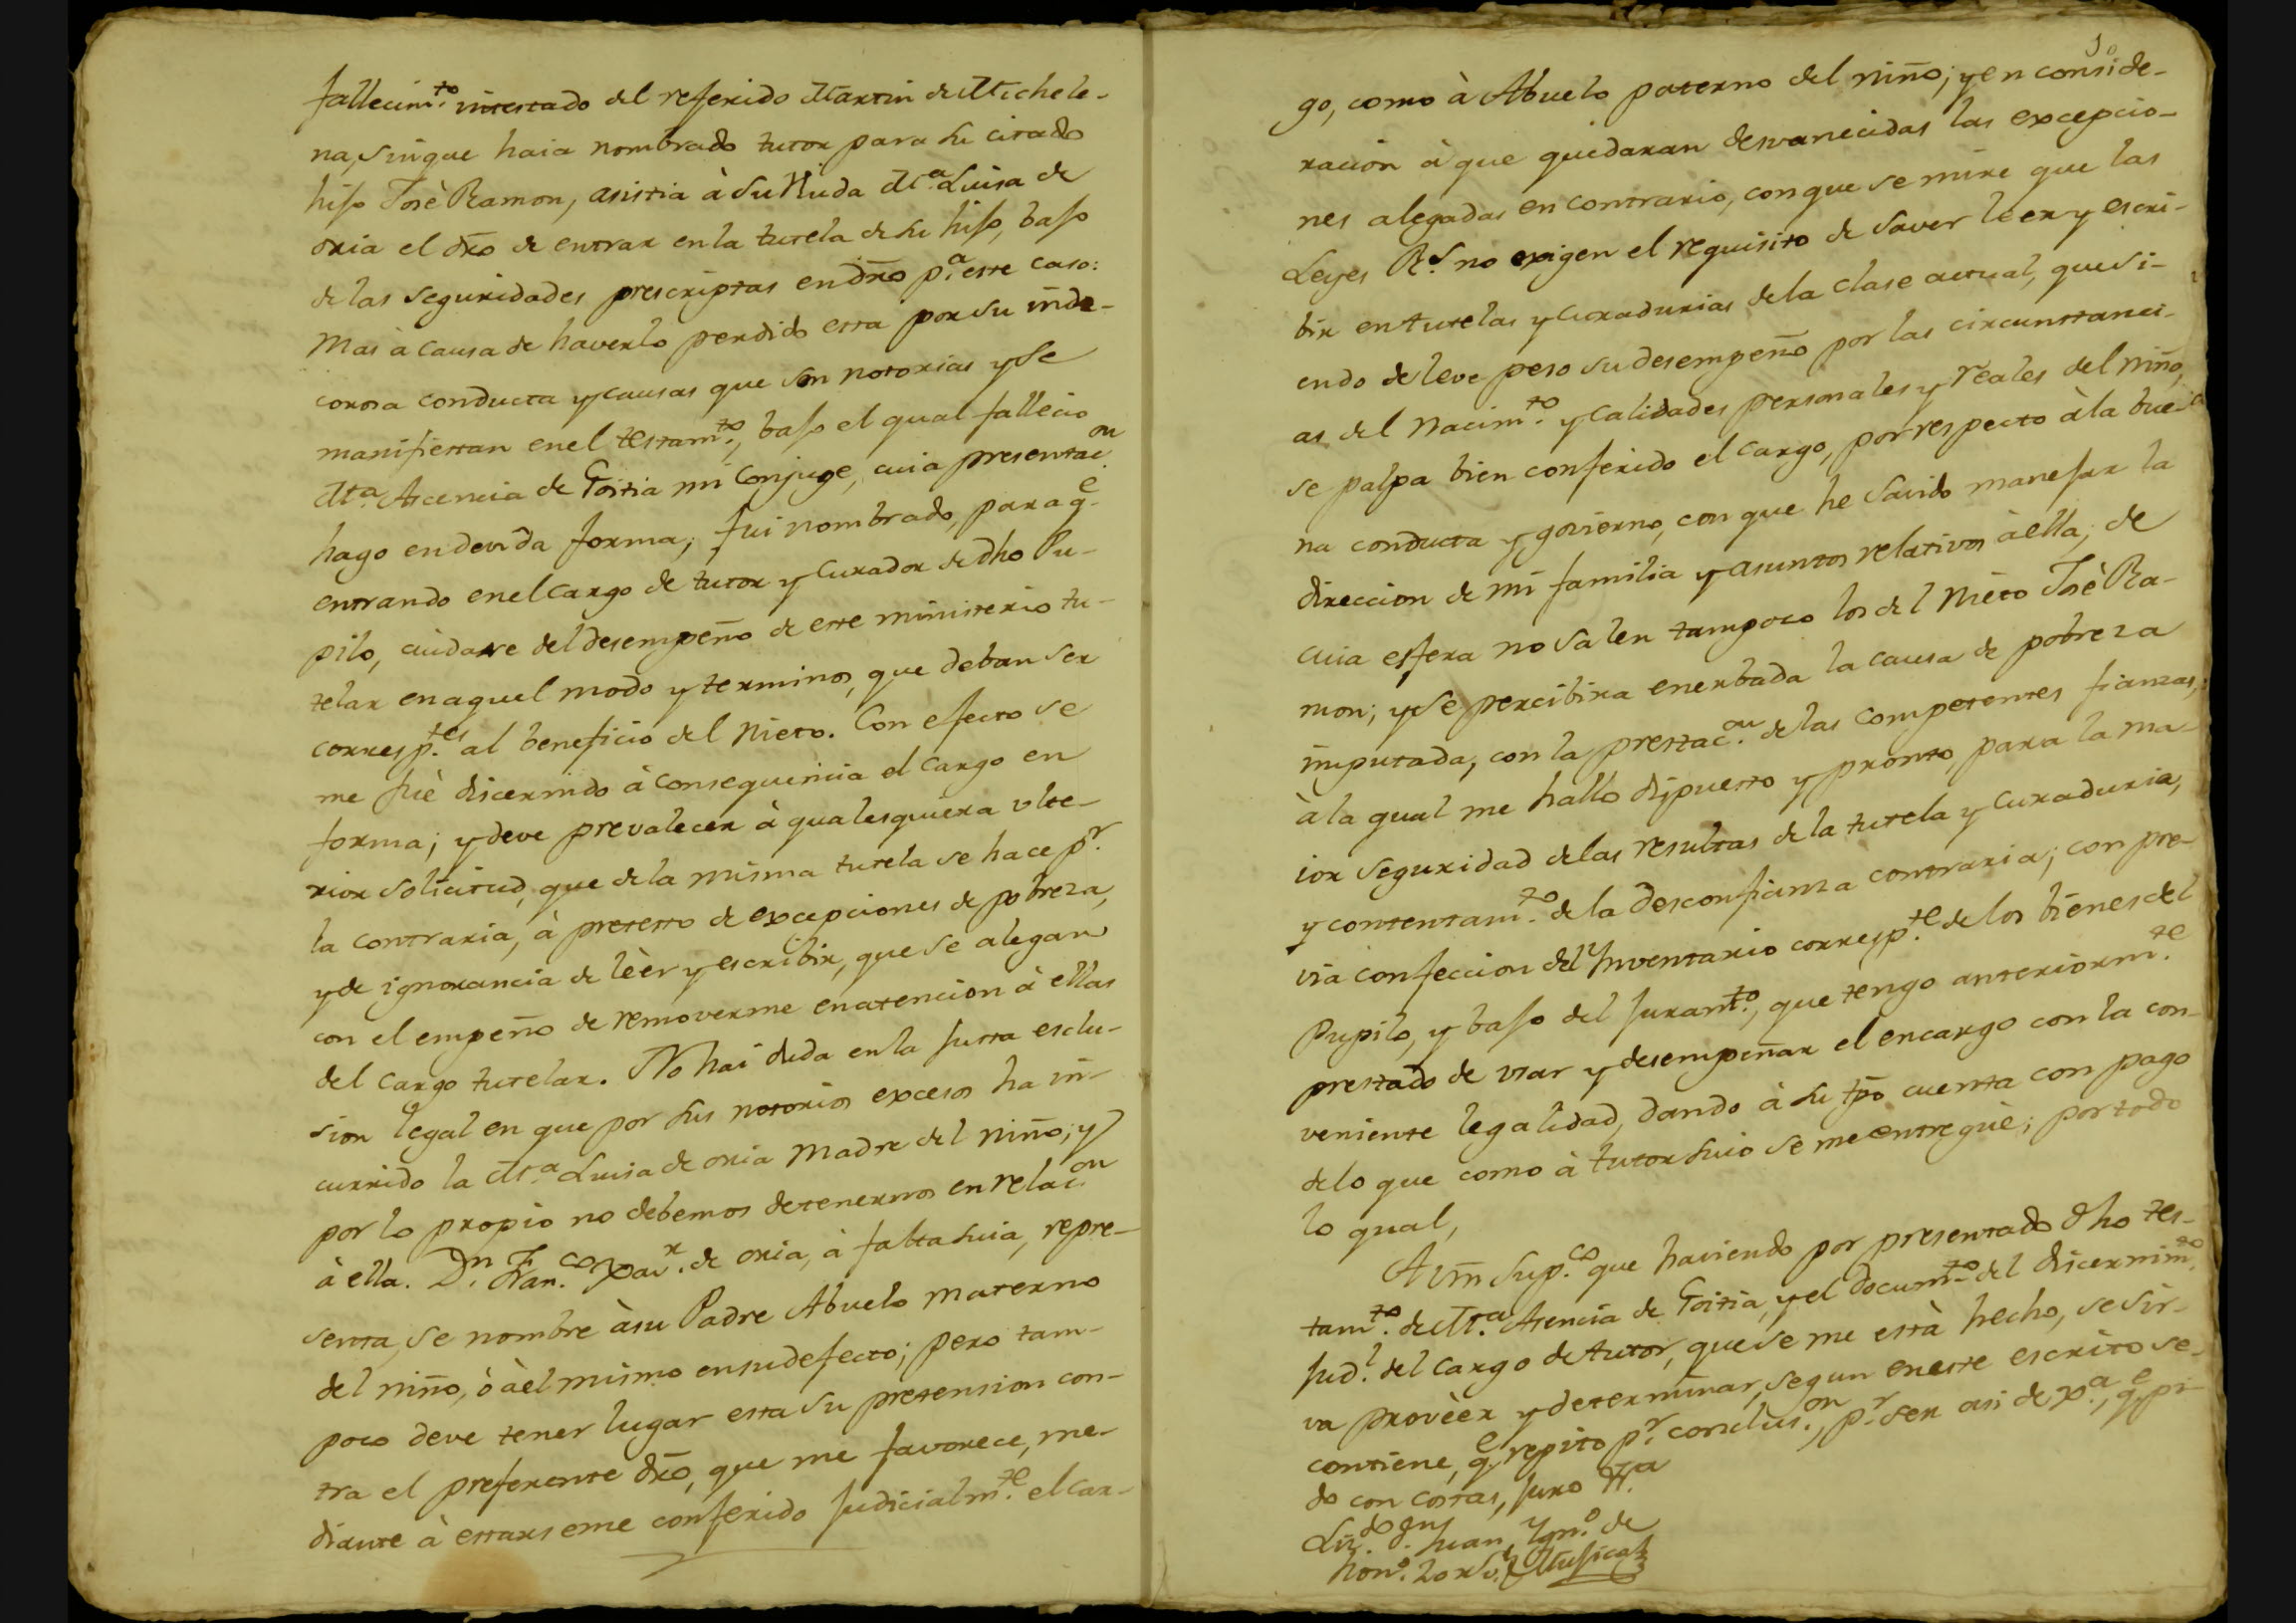 fallecim.to intestado del referido Martin de Michele-
na, sin que haia nombrado tutor para su citado
hijo Josè Ramon, asistia à su Viuda M.a Luisa de
oria el dro de entrar en la tutela de su hijo, bajo
de las seguridades prescriptas en dro p.a este caso:
Mas à causa de haverlo perdido esta por su inde-
corosa conducta y causas que son notorias y se
manifiestan en el testam.to, bajo el qual fallecio
M.a Ascencia de Goitia mi Conjuge, cuia presentac.on
hago en devida forma; fui nombrado, para q.e
entrando en el cargo de tutor y Curador de dho Pu-
pilo, cuidase del desempeño de este ministerio tu-
telar en aquel modo y terminos, que deban ser
corresp.tes al beneficio del Nieto. Con efecto se
me fuè discernido à consequencia el cargo en
forma; y deve prevalecer à qualesquiera ulte-
rior solicitud, que de la misma tutela se hace p.r
la contraria, à pretesto de excepciones de pobreza,
y de ignorancia de lèer y escribir, que se alegan
con el empeño de removerme en atencion à ellas
del cargo tutelar. No hai duda en la justa esclu-
sion legal en que por sus notorios excesos ha in-
currido la M.a Luisa de oria Madre del niño; y
por lo propio no debemos detenernos en relac.on
à ella. D.n Fran.co Xav.r de oria, à falta suia, repre-
senta, se nombre à su Padre Abuelo materno
del niño, ò à èl mismo en su defecto; pero tam-
poco deve tener lugar esta su pretension con-
tra el preferente dro, que me favorece, me-
diante à estarseme conferido judicialm.te el car-
go, como à Abuelo paterno del niño; y en conside-
racion à que quedaran desvanecidas las excepcio-
nes alegadas en contrario, con que se mire que las
Leyes R.s no exigen el requisito de saver leer y escri-
bir en tutelas y curadurias de la clase actual, que si-
endo de leve peso su desempeño por las circunstanci-
as del Nacim.to y calidades personales y reales del niño,
se palpa bien conferido el cargo, por respecto à la bue-
na conducta y govierno, con que he savido manejar la
direccion de mi familia y asuntos relativos à ella; de
cuia esfera no salen tampoco los del Nieto Josè Ra-
mon; y se percibira enerbada la causa de pobreza
imputada, con la prestac.on de las competentes fianzas,
à la qual me hallo dispuesto y pronto, para la ma-
ior seguridad de las resultas de la tutela y Curaduria,
y contentam.to de la desconfianza contraria; con pre-
via confeccion del Ynventario corresp.te de los bienes del
Pupilo, y bajo del juram.to, que tengo anteriorm.te
prestado de usar y desempeñar el encargo con la con-
veniente legalidad, dando à su tpo cuenta con pago
de lo que como à tutor suio se me entreguè; por todo
lo qual,
A vm Sup.co que haviendo por presentado dho tes-
tam.to de M.a Asencia de Goitia, y el docum.to del discernim.to
jud.l del cargo de tutor, que se me està hecho, se sir-
va provèer y determinar, segun en este escrito se
contiene, q.e repito p.r conclus.on, p.r ser asi de x.a, q.e pi-
do con costas, juro &.a
Liz.do D.n Juan Ygn.o de
Mujica